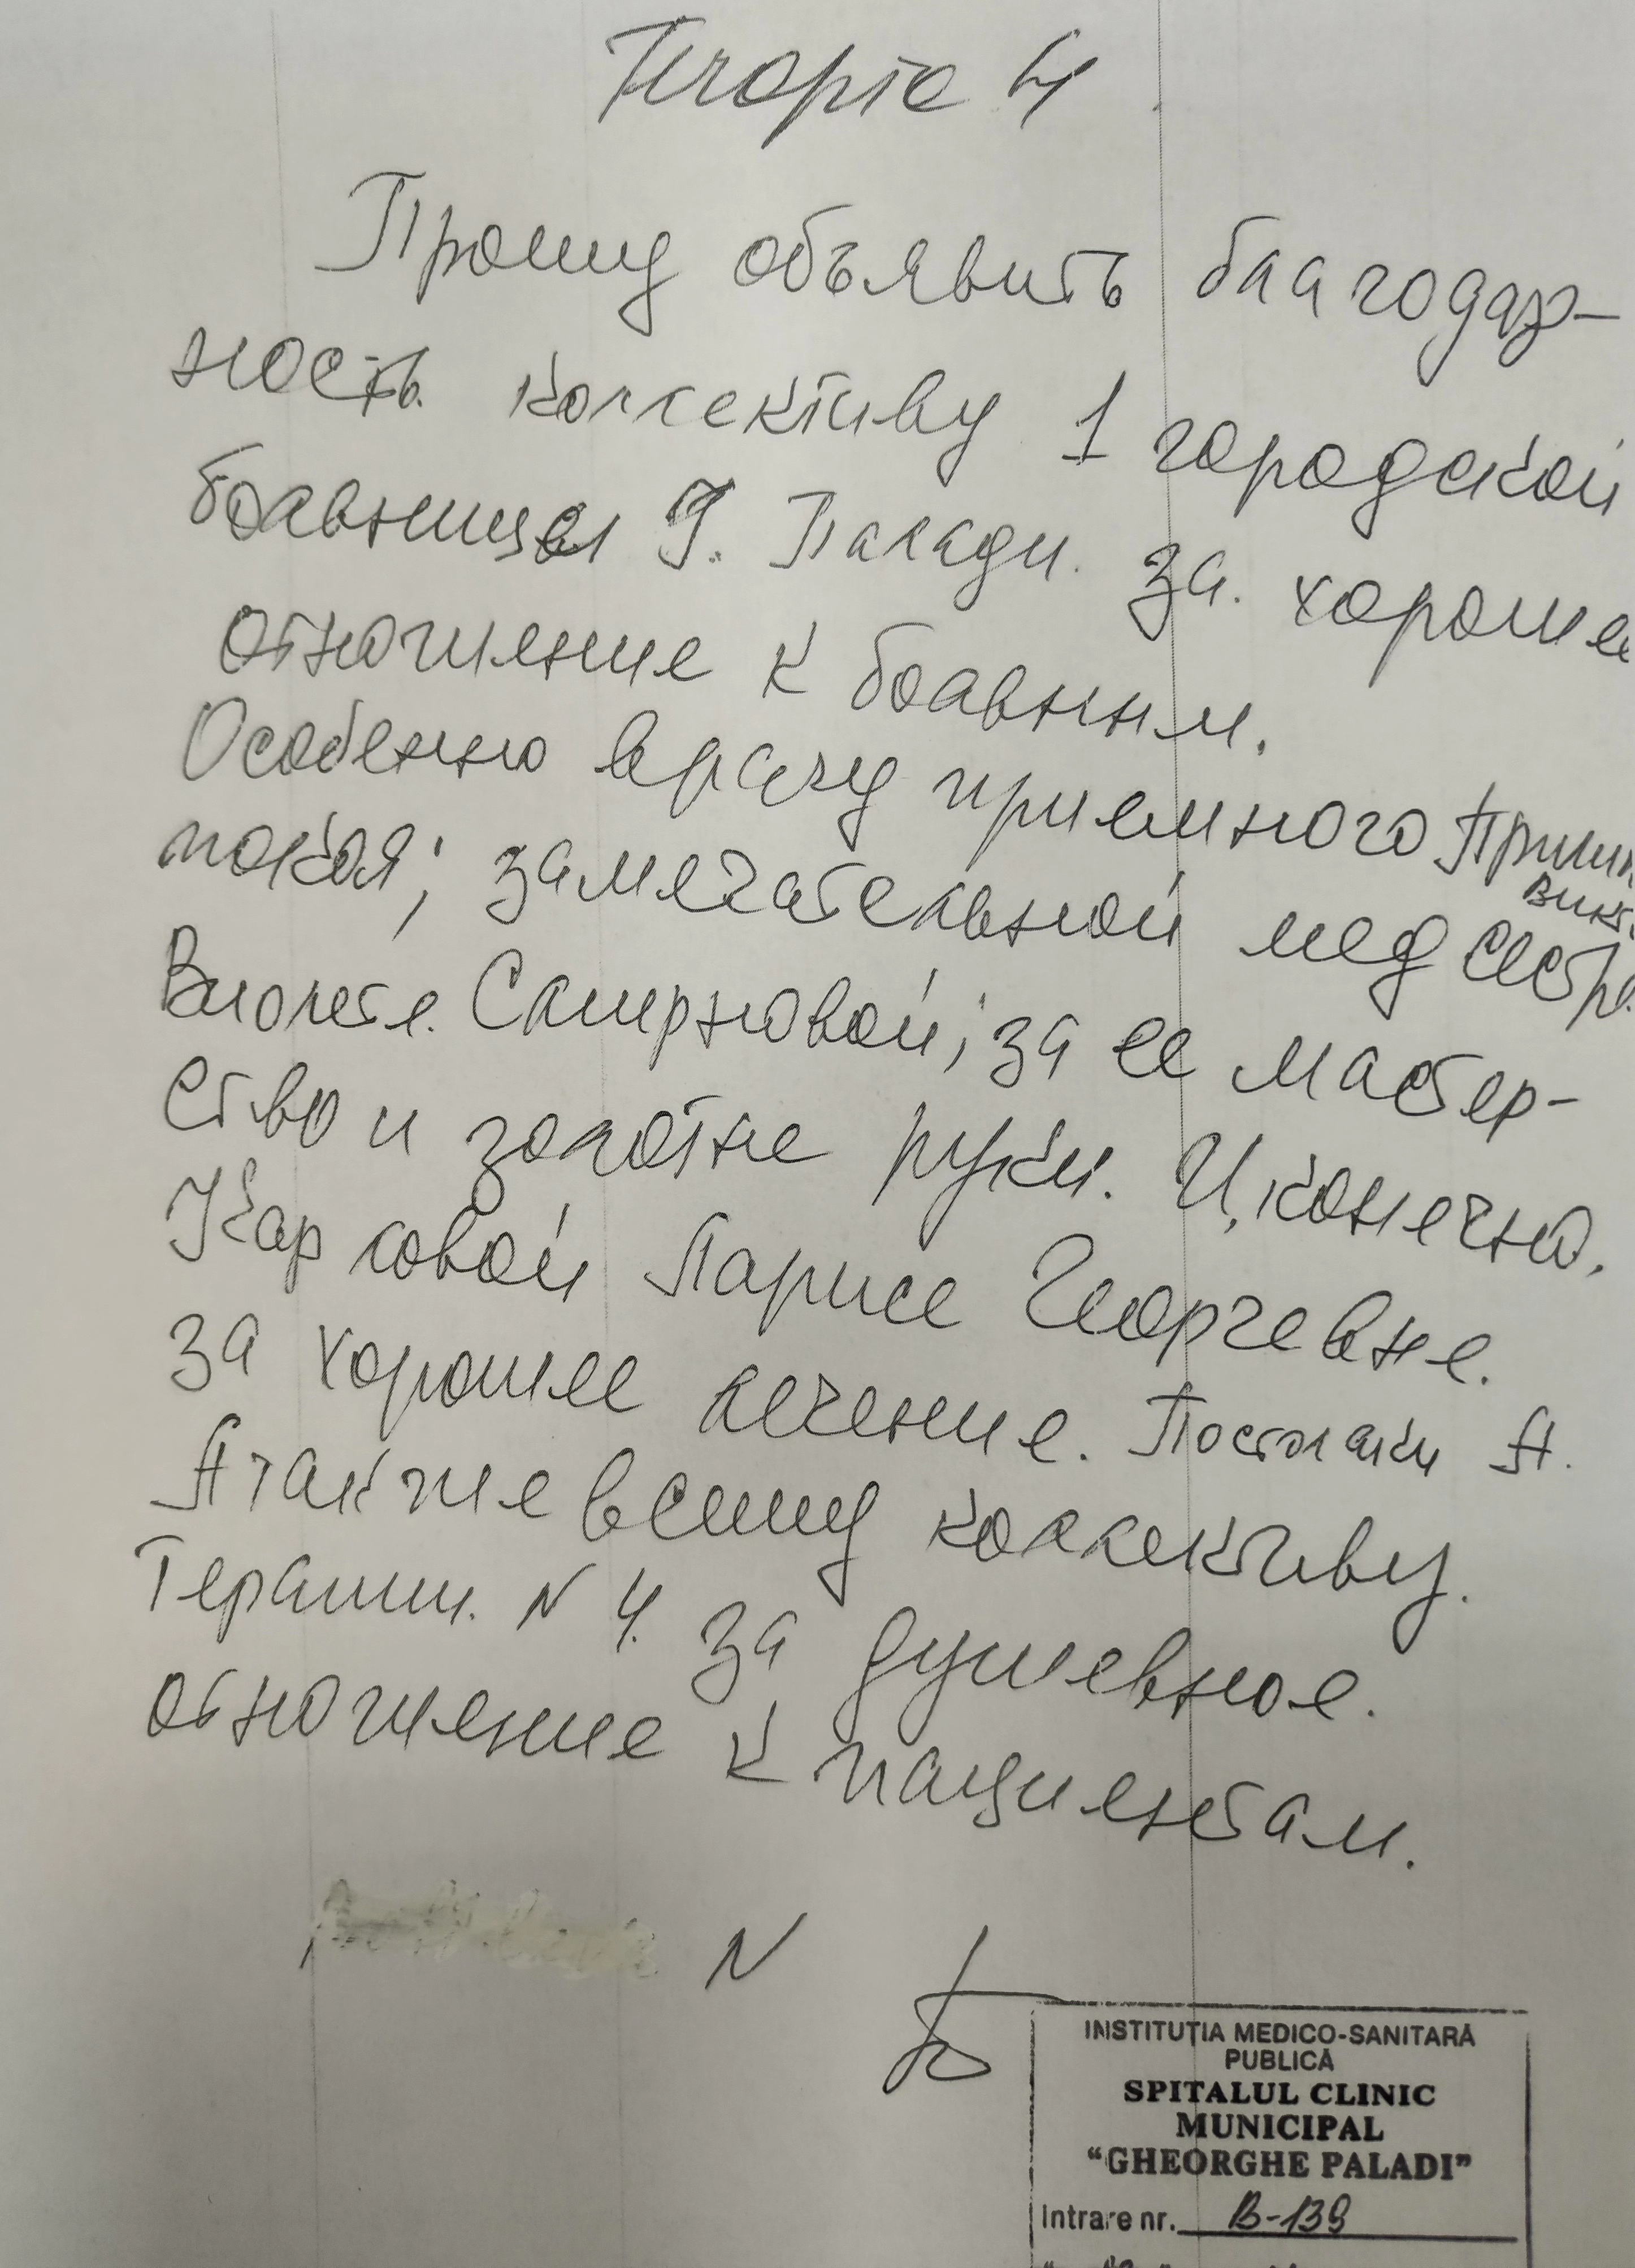 Terapie 4
Прошу объявить благодар-
ность коллективу 1 городской
больницы Г. Палади. за. хорошее
отношение к больным.
Особенно врачу приемного
покоя; замечательной медсестре
Виолете. Смирновой; за ее мастер-
ство и золотые руки. И, конечно,
Карловой Ларисе Георгевне.
за хорошее лечение. Постолаки А.
А также всему коллективу.
Терапии. N 4. за душевное.
отношение к пациентам.
N
INSTITUȚIA MEDICO-SANITARĂ
PUBLICĂ
SPITALUL CLINIC
MUNICIPAL
“GHEORGHE PALADI”
Intrare nr. B-139